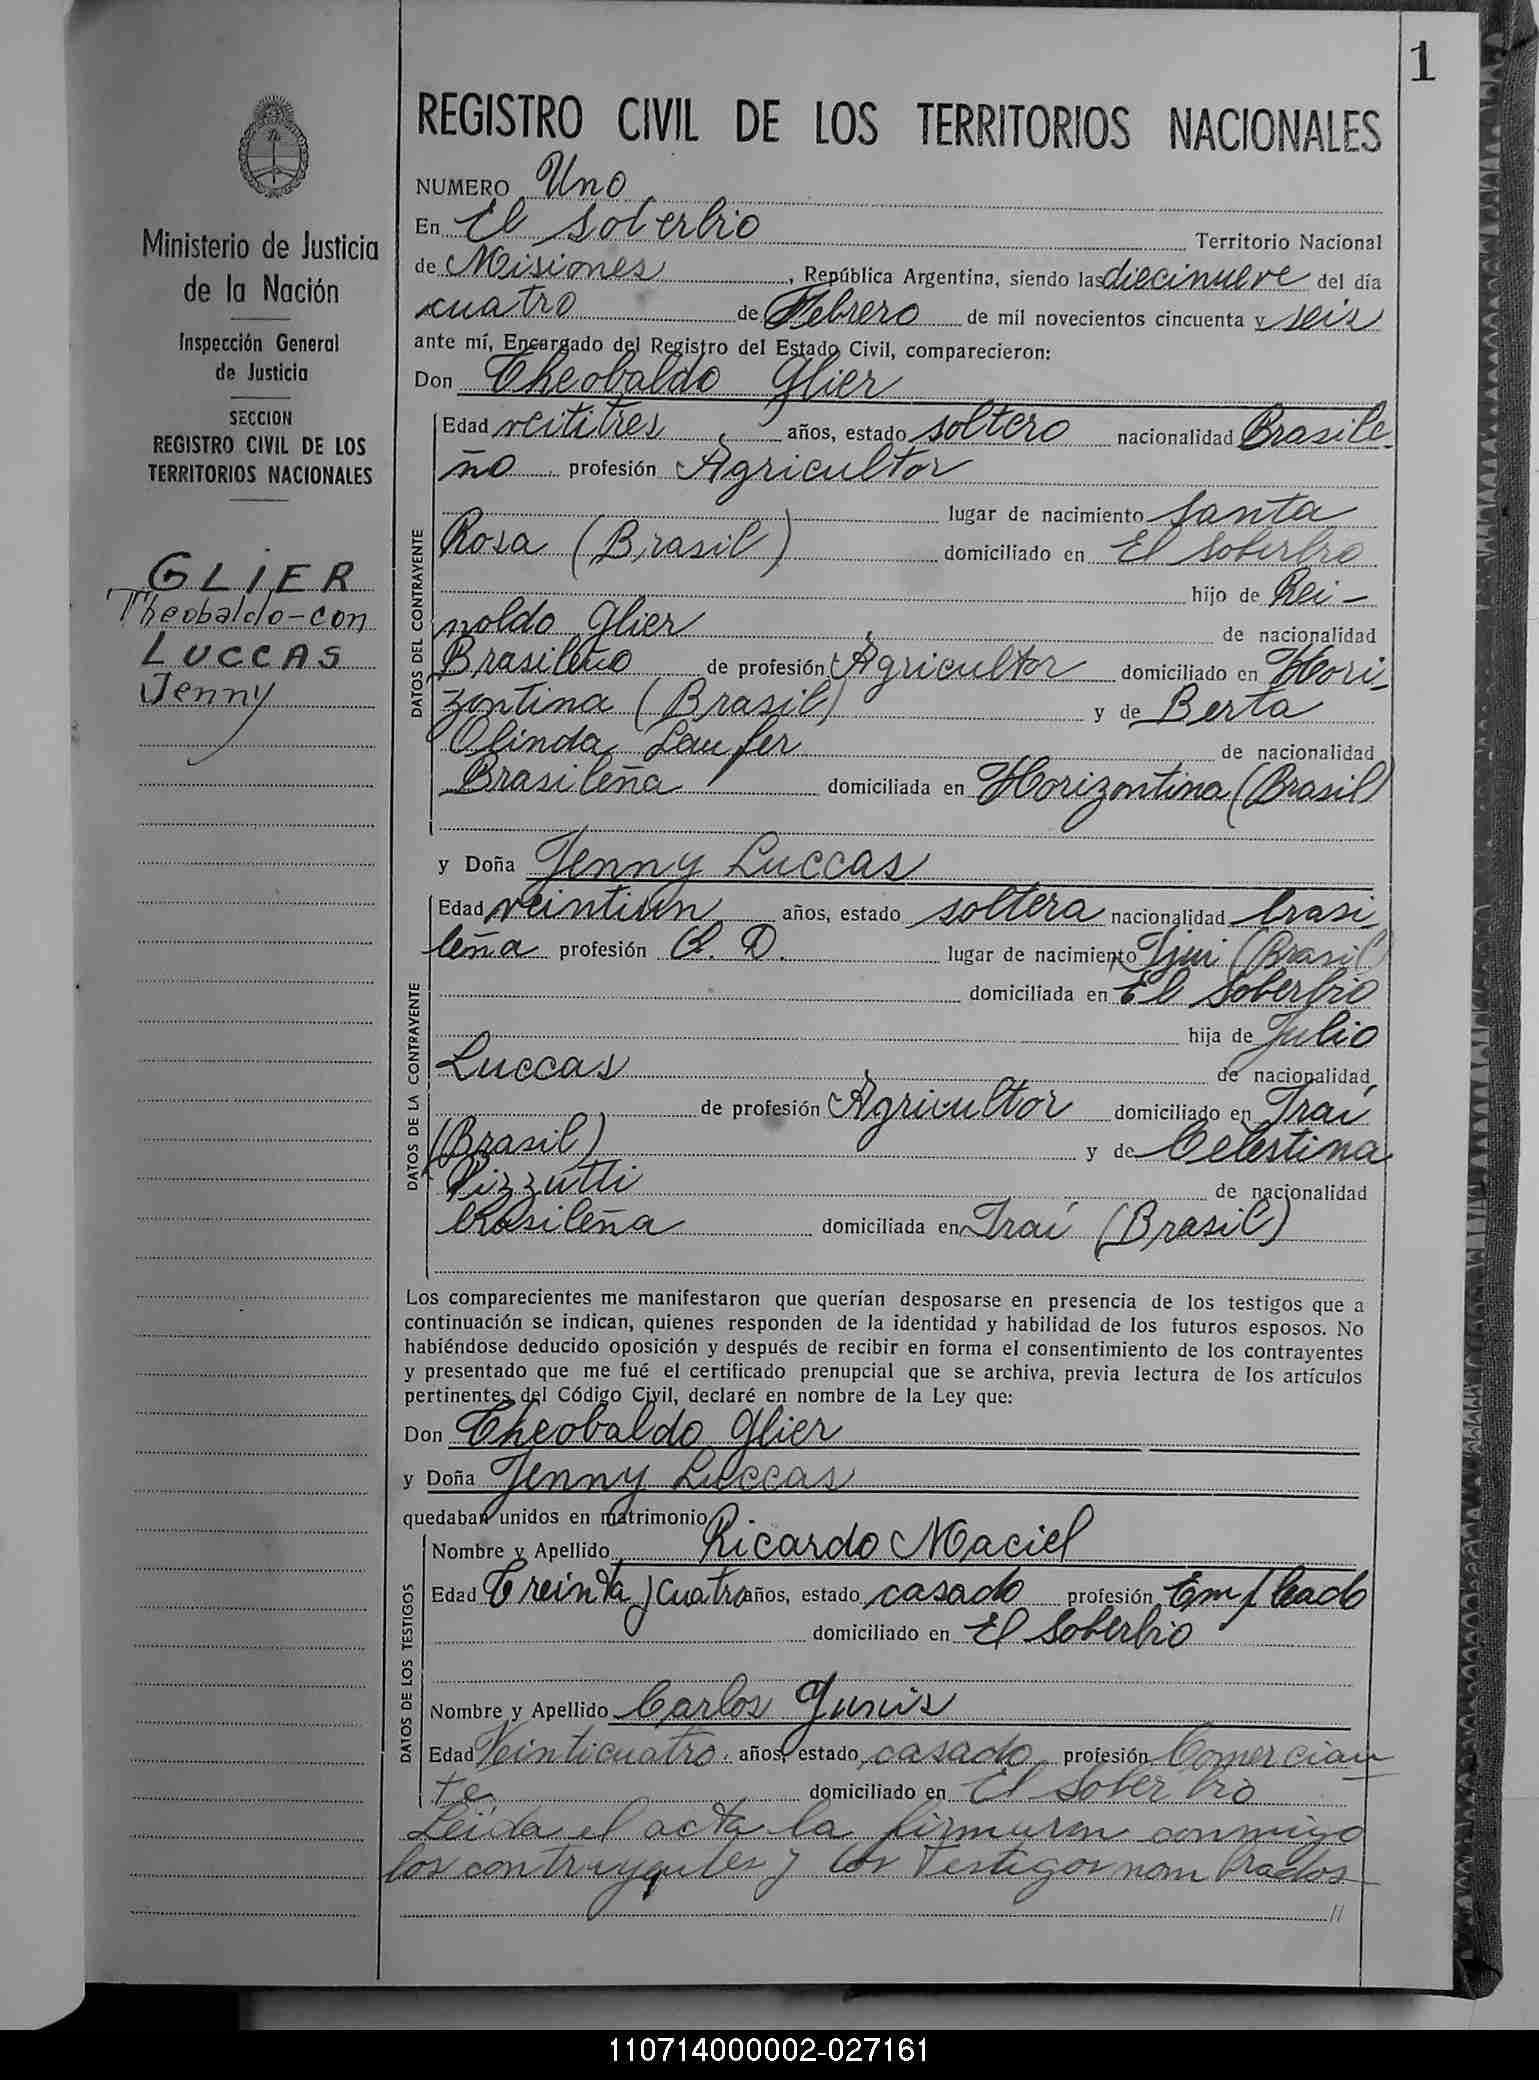 1
REGISTRO CIVIL DE LOS TERRITORIOS NACIONALES
Ministerio de Justicia
de la Nación
Inspección General
de Justicia
SECCION
REGISTRO CIVIL DE LOS
TERRITORIOS NACIONALES
GLIER
Theobaldo-con
LUCCAS
Jenny
NUMERO Uno
En El Soberbio Territorio Nacional
de Misiones, República Argentina, siendo las diecinueve del día
cuatro de Febrero de mil novecientos cincuenta y seis
ante mí, Encargado del Registro del Estado Civil, comparecieron:
Don Theobaldo Glier
DATOS DEL CONTRAYENTE
Edad veititres años, estado soltero nacionalidad Brasile-
ño profesión Agricultor
lugar de nacimiento Santa
Rosa (Brasil) domiciliado en El Soberbio
hijo de Rei-
noldo Glier de nacionalidad
Brasileño de profesión Agricultor domiciliado en Hori-
zontina (Brasil) y de Berta
Olinda Laufer de nacionalidad
Brasileña domiciliada en Horizontina (Brasil)
y Doña Jenny Luccas
DATOS DE LA CONTRAYENTE
Edad veintiun años, estado soltera nacionalidad brasi
leña profesión Q. D. lugar de nacimiento Ijui (Brasil)
domiciliada en El Soberbio
hija de Julio
Luccas de nacionalidad
de profesión Agricultor domiciliado en Iraí
(Brasil) y de Celestina
Pizzutti de nacionalidad
brasileña domiciliada en Iraí (Brasil)
Los comparecientes me manifestaron que querían desposarse en presencia de los testigos que a
continuación se indican, quienes responden de la identidad y habilidad de los futuros esposos. No
habiéndose deducido oposición y después de recibir en forma el consentimiento de los contrayentes
y presentado que me fué el certificado prenupcial que se archiva, previa lectura de los artículos
pertinentes del Código Civil, declaré en nombre de la Ley que:
Don Theobaldo Glier
y Doña Jenny Luccas
quedaban unidos en matrimonio
DATOS DE LOS TESTIGOS
Nombre y Apellido Ricardo Maciel
Edad Treinta y cuatro años, estado casado profesión Empleado
domiciliado en El Soberbio
Nombre y Apellido Carlos Yunis
Edad Veinticuatro años, estado casado profesión Comercian
te domiciliado en El Soberbio
Leída el acta la firmaron conmigo
los contrayentes y los testigos nombrados
//
110714000002-027161